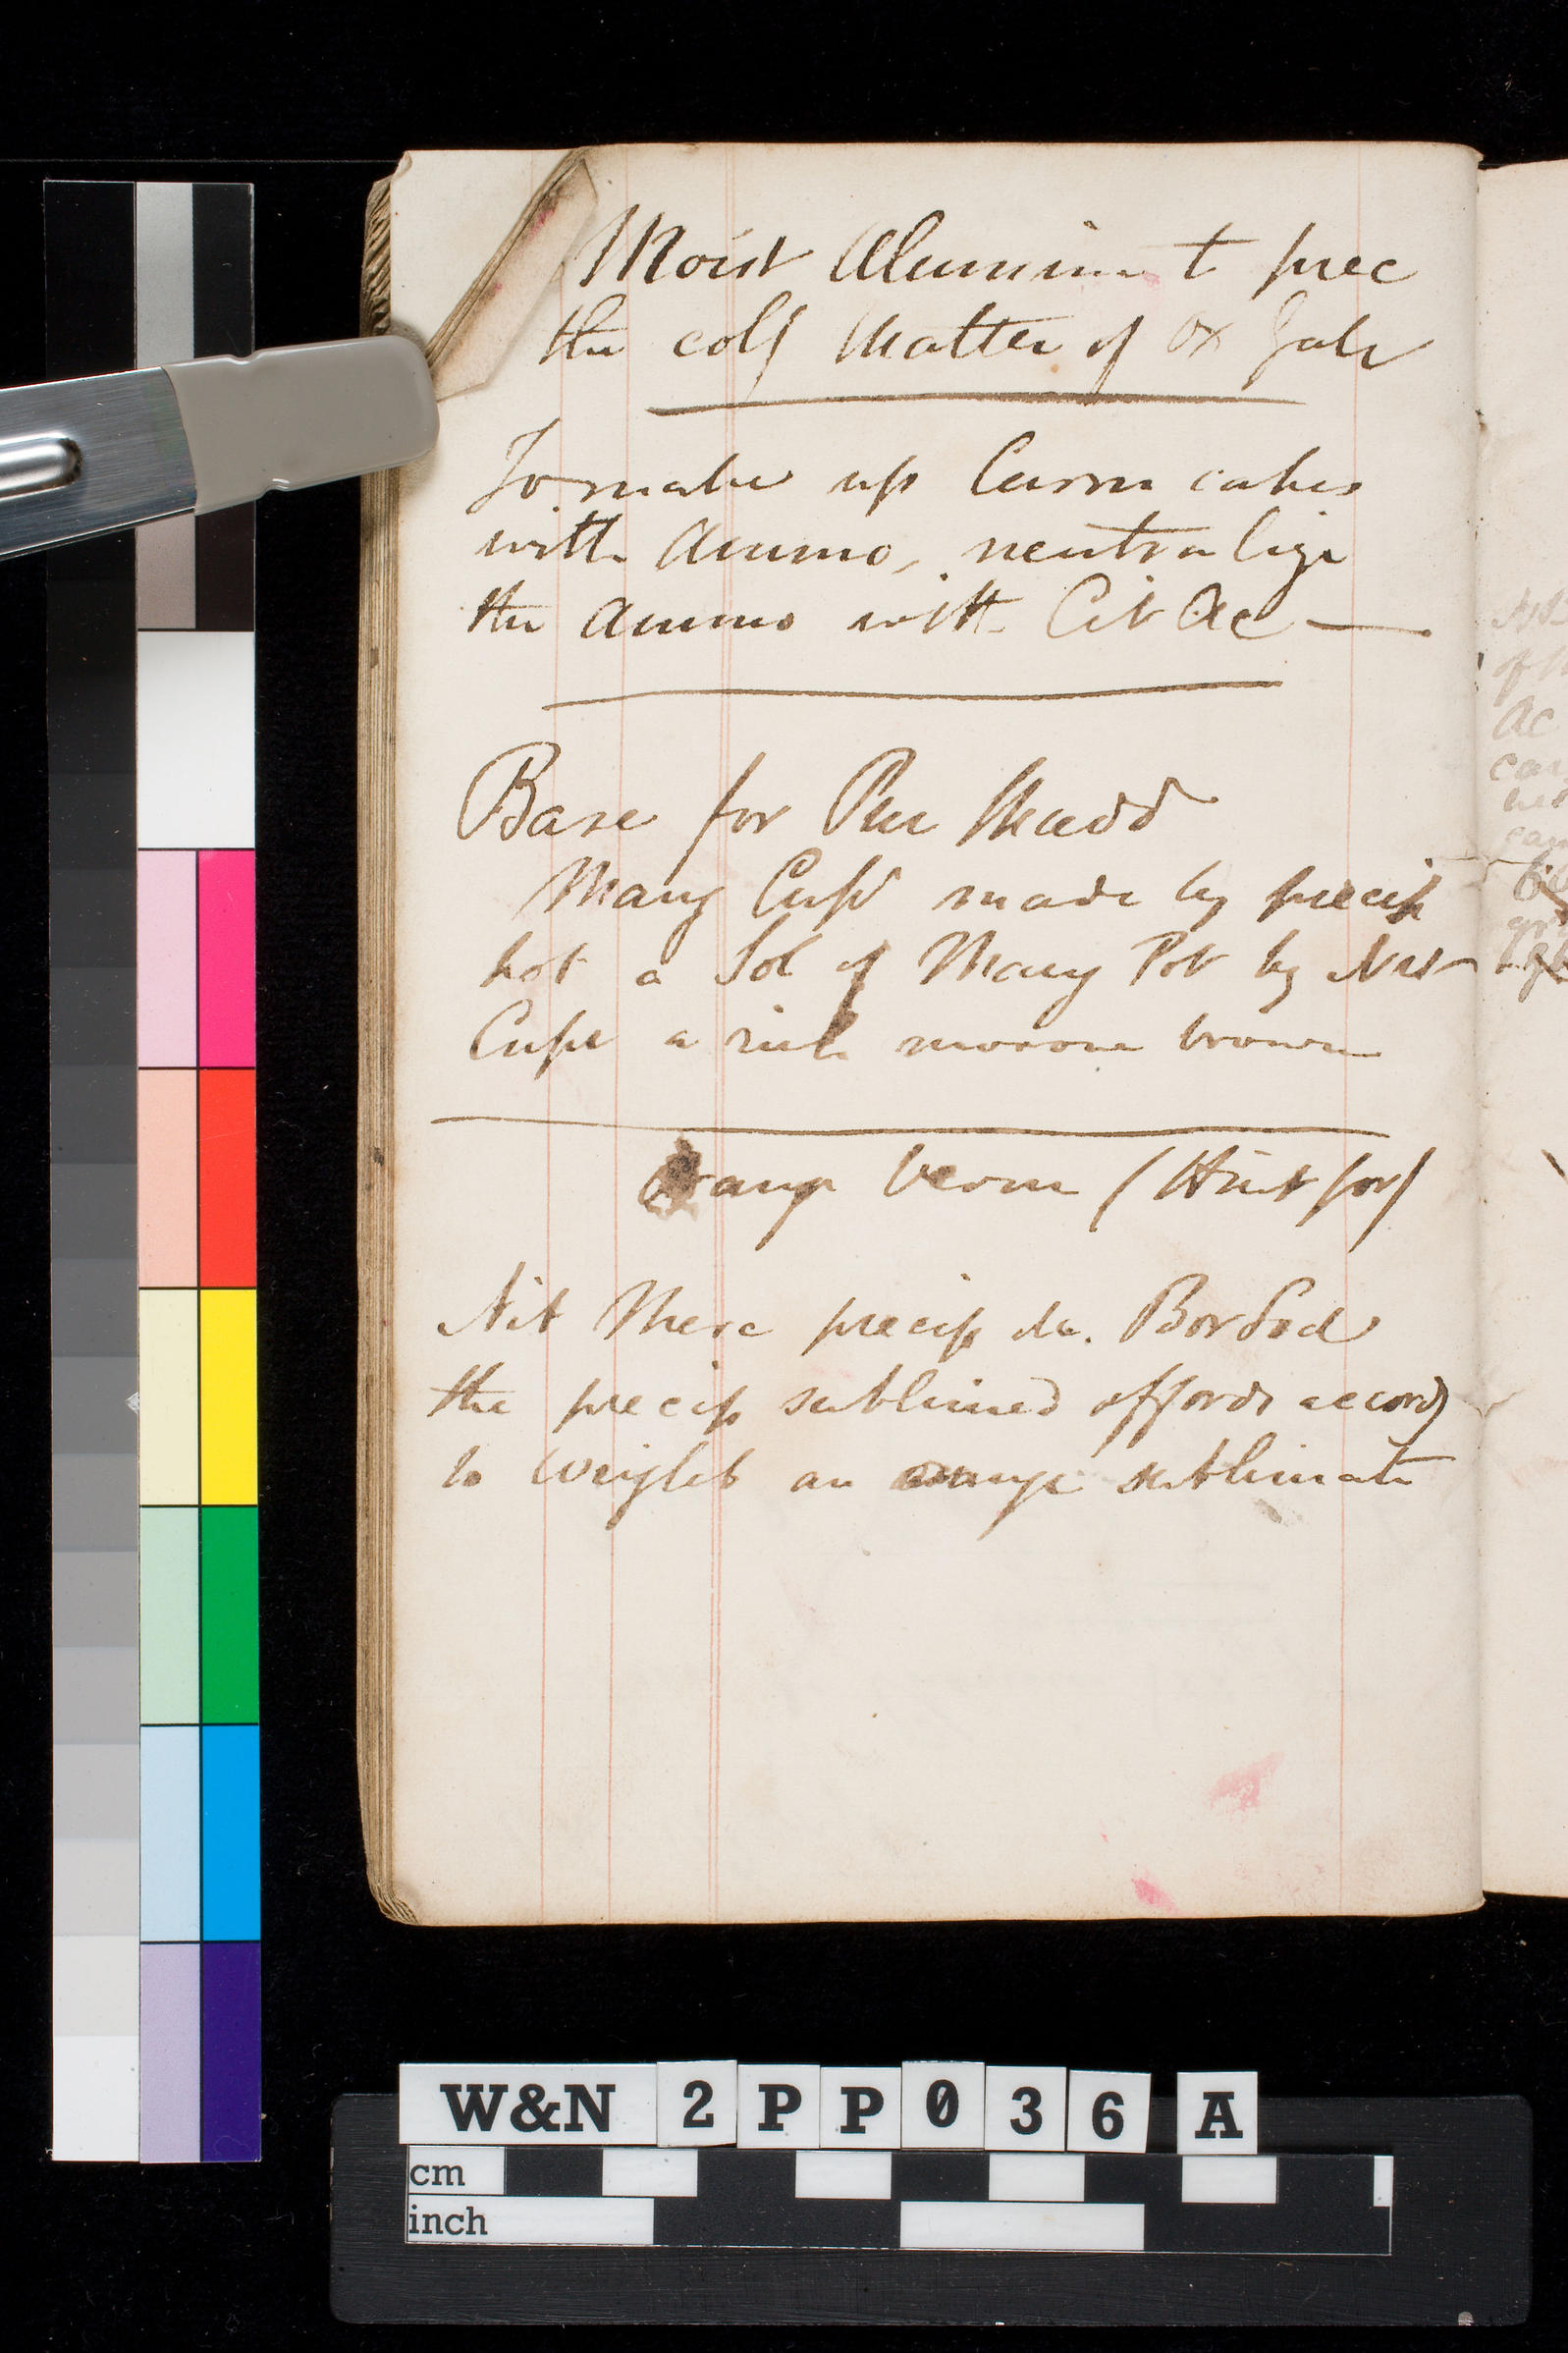 Moist Alumina t prec
the colg Matter of Ox Gale
To make up Carm cakes
with Ammo, neutralize
the Ammo with Cit Ac —
Base for Pur Madd
Mang Cupd made by precip
hot a Sol of Mang Pot by
Cupr a rich morone brown
Orange Verm (Hint for)
Nit Merc precip Bor Sod
the precip sublimed affords accordg
to Wright an orange sublimate
of
Ac
W&N 2 P P 0 3 6 A
cm
inch